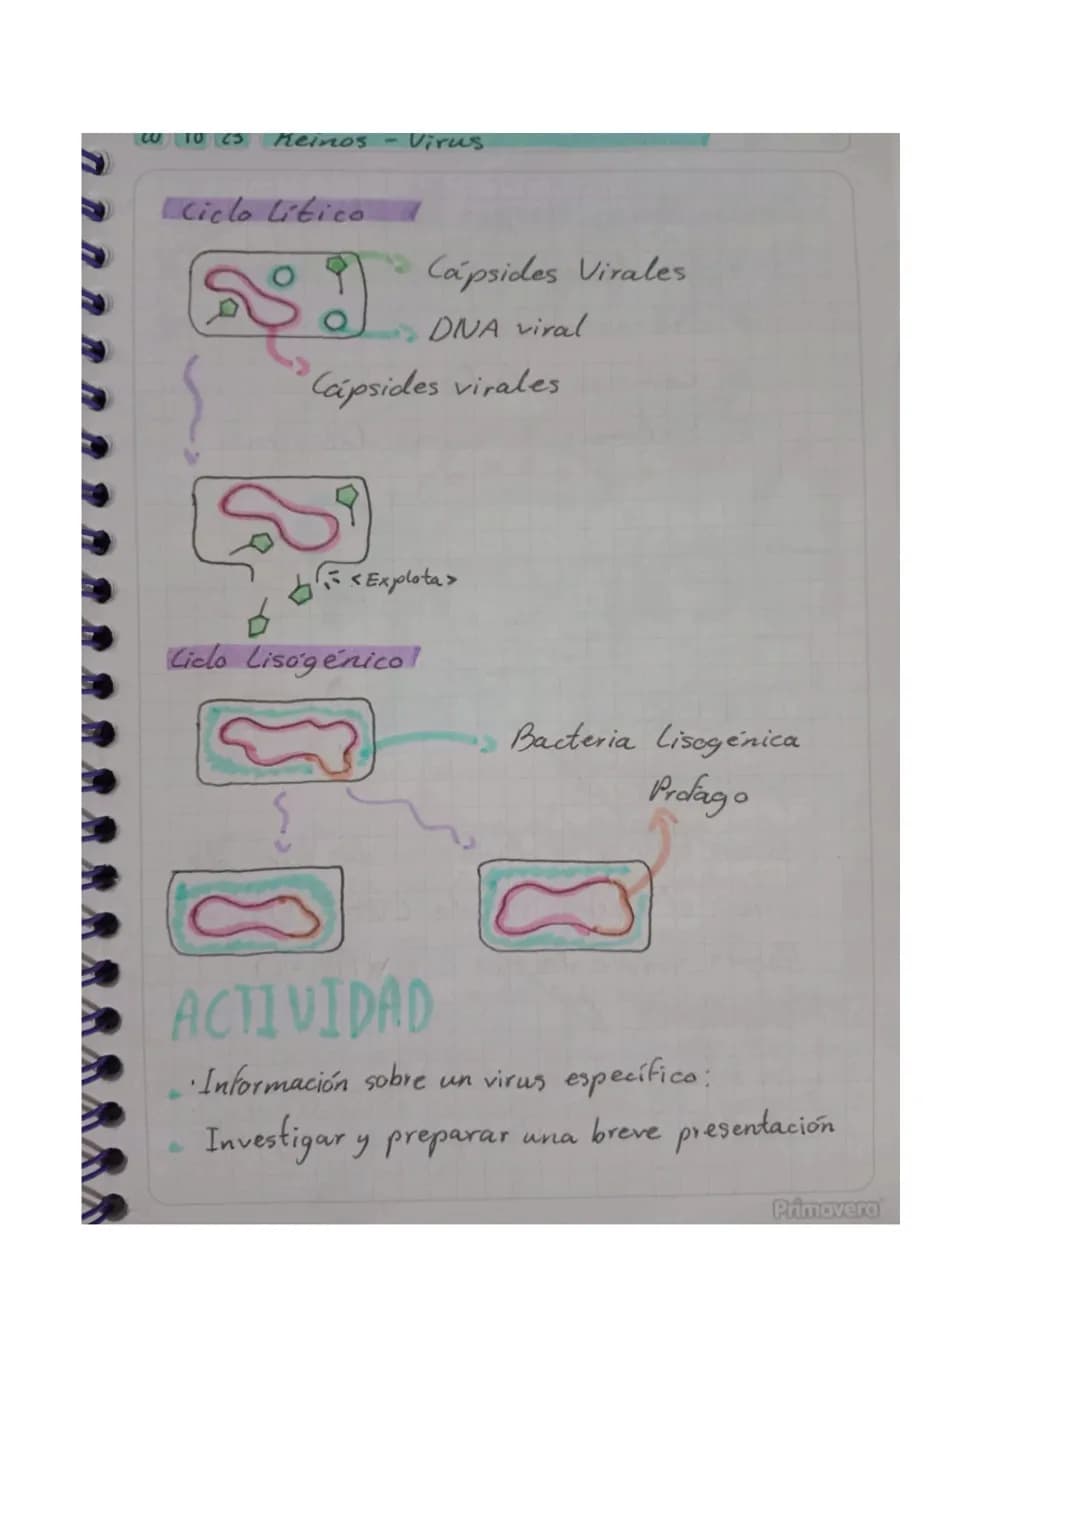 20 10 23 Reinos - Virus
Ciclo Lítico
Cápsides Virales
DNA viral
Cápsides virales
<Explota>
Ciclo Lisogénico
Bacteria Lisogénica
Profago
ACTIVIDAD
· Información sobre un virus específico:
Investigar y preparar una breve presentación
Primavera